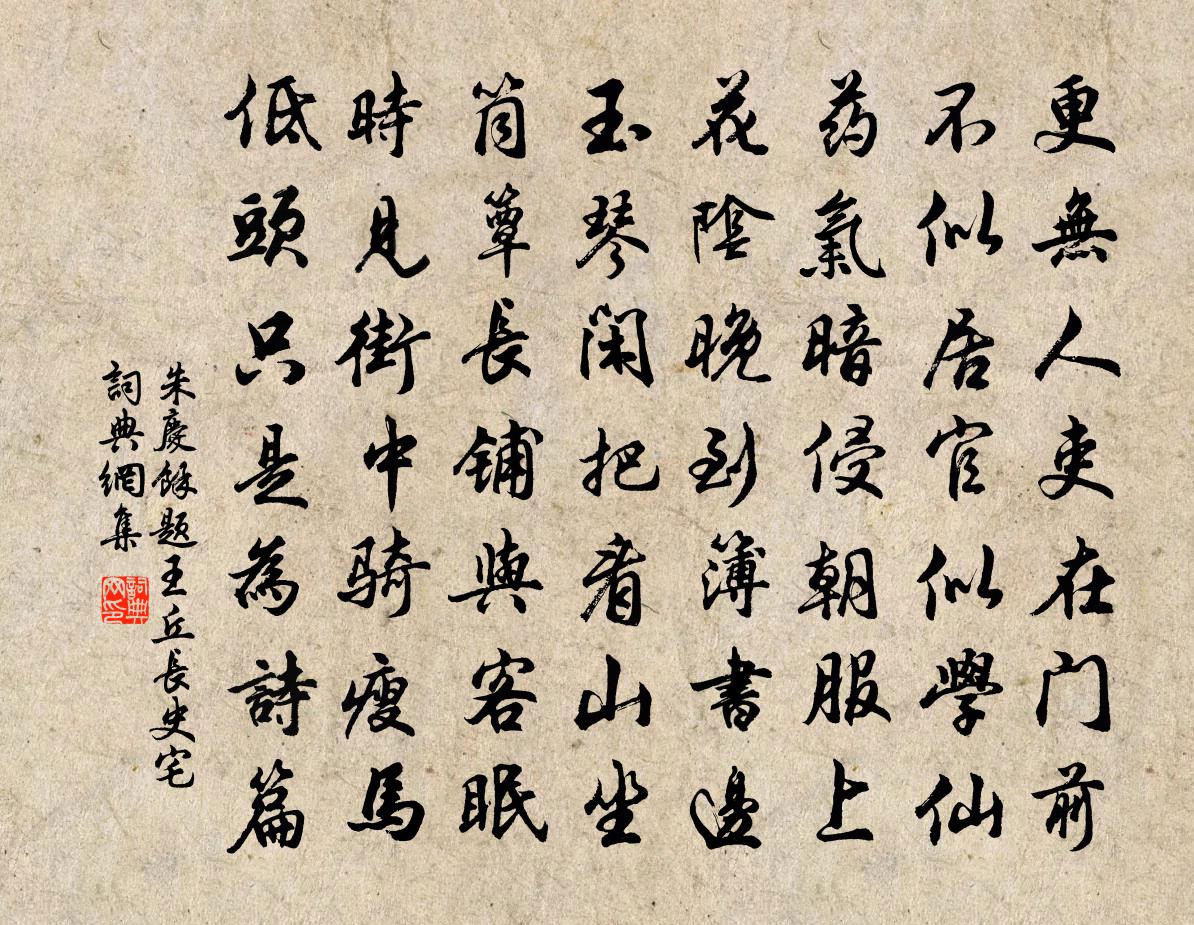 更無人吏在门前
不似居官似學仙
药氣暗侵朝服上
花陰晚到簿書邊
玉琴闲把看山坐
筒簟長鋪與客眠
時見街中騎瘦馬
低頭只是為詩篇
朱慶餘题王丘長史宅
詞典網集
詞典网印